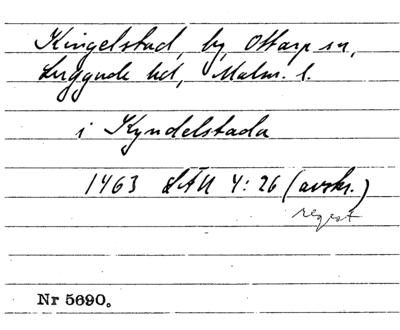 Kingelstad, by, Ottarp sn,
Luggude hd, Malm. l.
i Kyndelstada
1463 LÄU 4:26 (avskr.)
regest
Nr 5690.